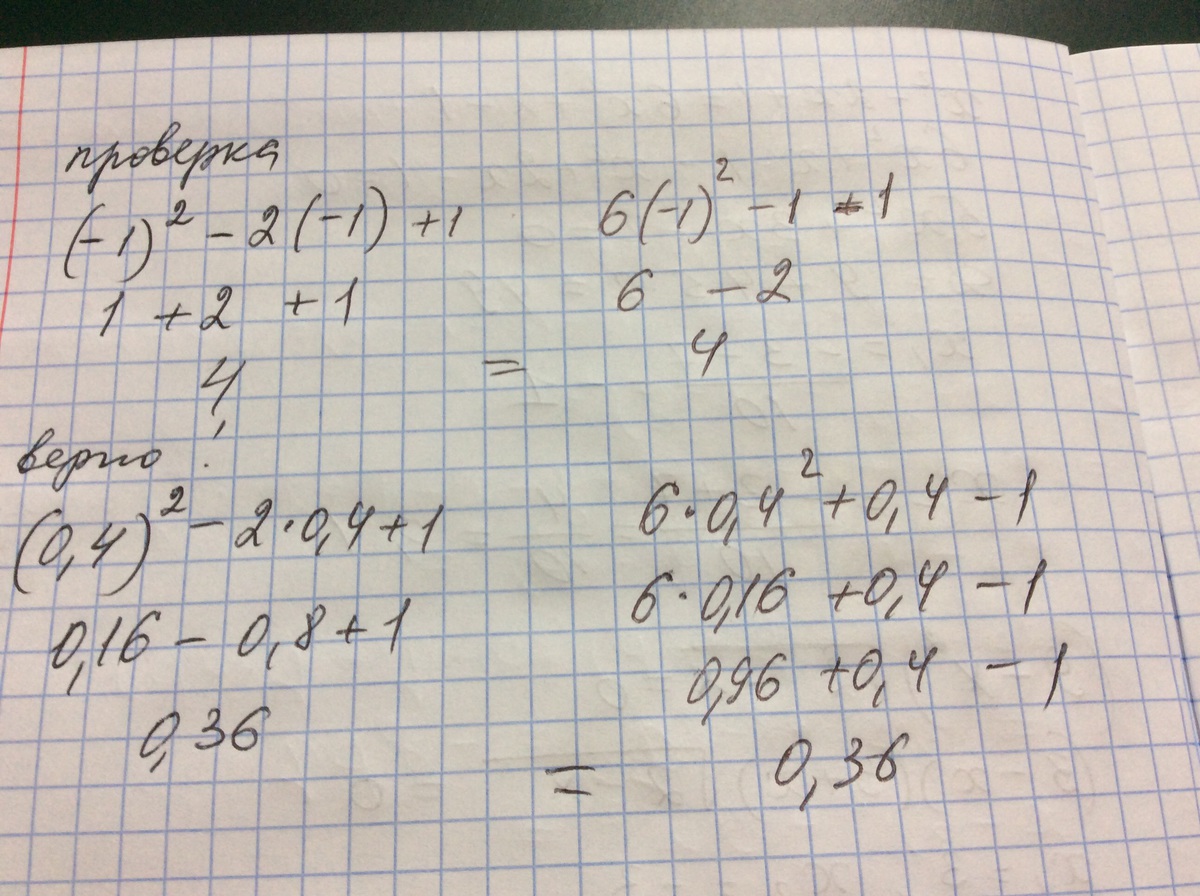 проверка
(-1)² - 2(-1) +1 6(-1)² -1 -1
1 +2 +1 6 -2
4 = 4
верно
(0,4)² - 2·0,4+1 6·0,4² +0,4 -1
0,16 - 0,8+1 6·0,16 +0,4 -1
0,96 +0,4 -1
0,36 = 0,36